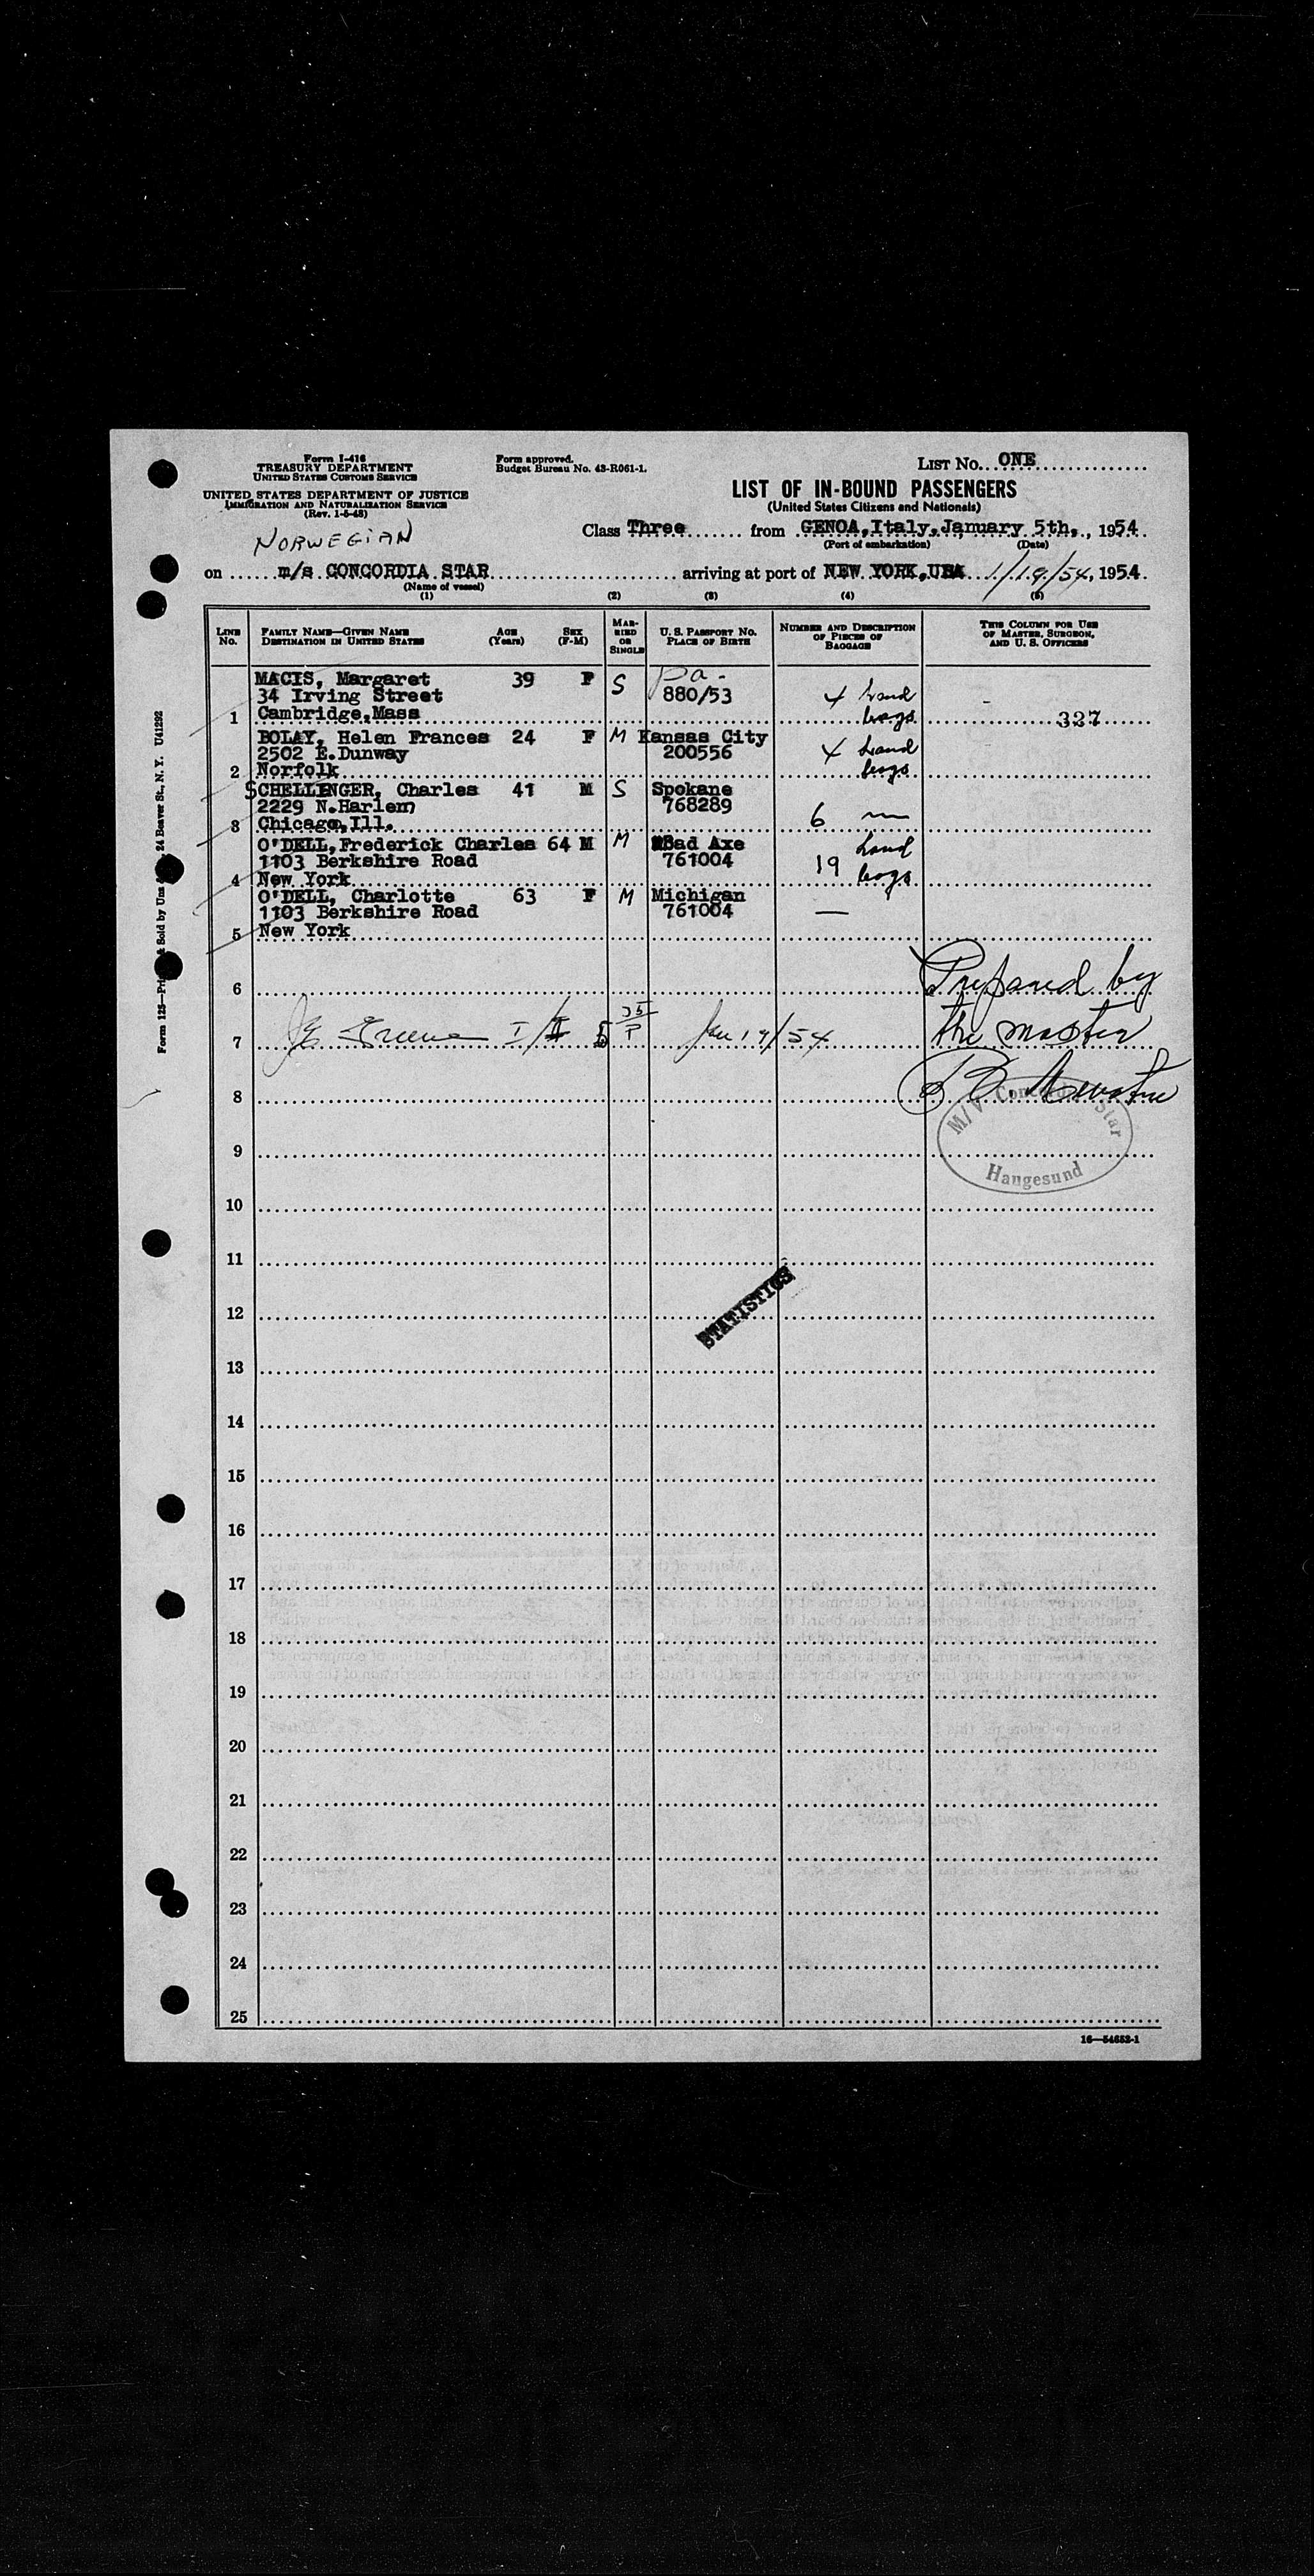 Form I-416
TREASURY DEPARTMENT
UNITED STATES CUSTOMS SERVICE
UNITED STATES DEPARTMENT OF JUSTICE
IMMIGRATION AND NATURALIZATION SERVICE
(Rev. 1-5-48)
Form approved.
Budget Bureau No. 43-R061-1.
LIST No. ONE
LIST OF IN-BOUND PASSENGERS
(United States Citizens and Nationals)
NORWEGIAN
Class Three from GENOA, Italy, January 5th, 1954
(Port of embarkation) (Date)
on m/s CONCORDIA STAR arriving at port of NEW YORK, USA 1/19/54, 1954
(Name of vessel)
(1) (2) (3) (4) (5)
LINE No. FAMILY NAME—GIVEN NAME DESTINATION IN UNITED STATES AGE (Years) SEX (F-M) MARRIED OR SINGLE U. S. PASSPORT No. PLACE OF BIRTH NUMBER AND DESCRIPTION OF PIECES OF BAGGAGE THIS COLUMN FOR USE OF MASTER, SURGEON, AND U. S. OFFICERS
MACIS, Margaret 39 F S Pa.
34 Irving Street 880/53 4 hand
1 Cambridge, Mass bags 327
BOLAY, Helen Frances 24 F M Kansas City
2502 E.Dunway 200556 4 hand
2 Norfolk bags
SCHELLINGER, Charles 41 M S Spokane
2229 N.Harlem 768289
3 Chicago, Ill. 6
O'DELL, Frederick Charles 64 M M Bad Axe hand
1103 Berkshire Road 761004 19 bags
4 New York
O'DELL, Charlotte 63 F M Michigan
1103 Berkshire Road 761004 —
5 New York
6 Prepared by
7 Greene I/I 5 Jan 19/54 the master
8
M/V Concordia Star
Haugesund
9
10
11
STATISTICS
12
13
14
15
16
17
18
19
20
21
22
23
24
25
16—54652-1
Form 125—Printed & Sold by Unz 24 Beaver St., N. Y. U41292